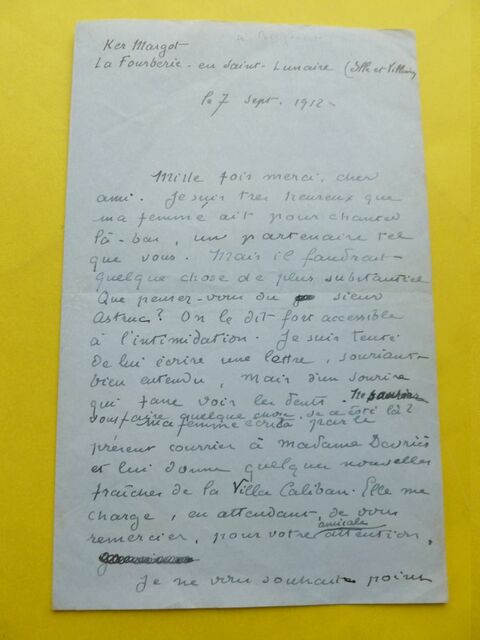 Ker Margot
La Fourberie. en Saint-Lunaire (Ille et Vilaine
le 7 sept. 1912-
Mille fois merci, cher
ami. Je suis très heureux que
ma femme ait pour chanter
là-bas, un partenaire tel
que vous. Mais il faudrait
quelque chose de plus substantiel
Que pensez-vous du sieur
Astruc? On le dit fort accessible
à l'intimidation. Je suis tenté
de lui écrire une lettre, souriante
bien entendu, mais d'un sourire
qui fasse voir les dents. Ne pourriez
vous faire quelque chose, de ce côté là?
Ma femme écrit par le
présent courrier à Madame Devriès
et lui donne quelques nouvelles
fraîches de la Villa Caliban. Elle me
charge, en attendant, de vous
remercier, pour votre amicale attention,
Je ne vous souhaite point